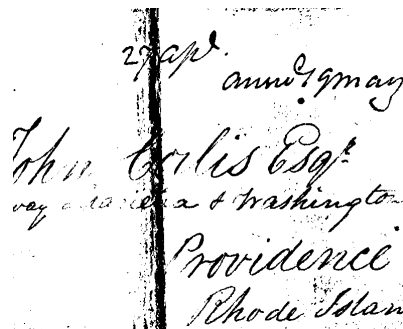 27 apl.
ansd 19 may
John Corlis Esqr.
way & Washington
Providence
Rhode Islan